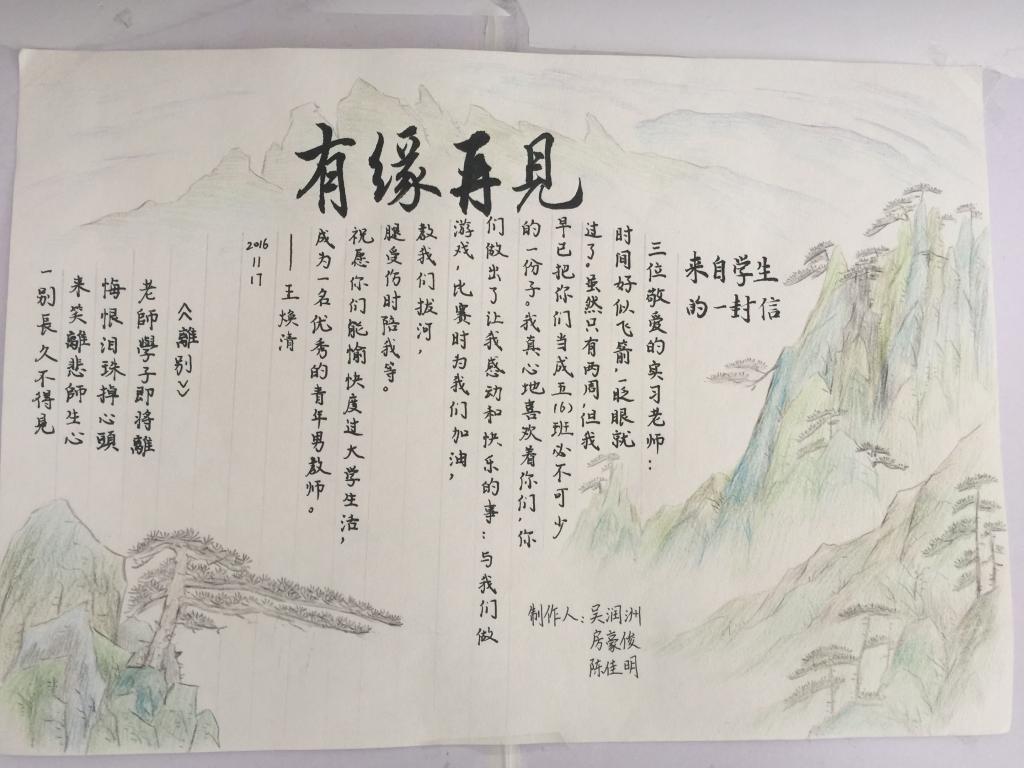 有缘再見
来自学生
的一封信
三位敬爱的实习老师：
时间好似飞箭，一眨眼就
过了。虽然只有两周，但我
早已把你们当成五(6)班必不可少
的一份子。我真心地喜欢着你们，你
们做出了让我感动和快乐的事：与我们做
游戏，比赛时为我们加油，
教我们拔河，
腿受伤时陪我等。
祝愿你们能愉快度过大学生活，
成为一名优秀的青年男教师。
——王焕清
2016
11
17
《離别》
老師學子即将離
悔恨泪珠掉心頭
来笑離悲師生心
一别長久不得見
制作人：吴润洲
房豪俊
陈佳明